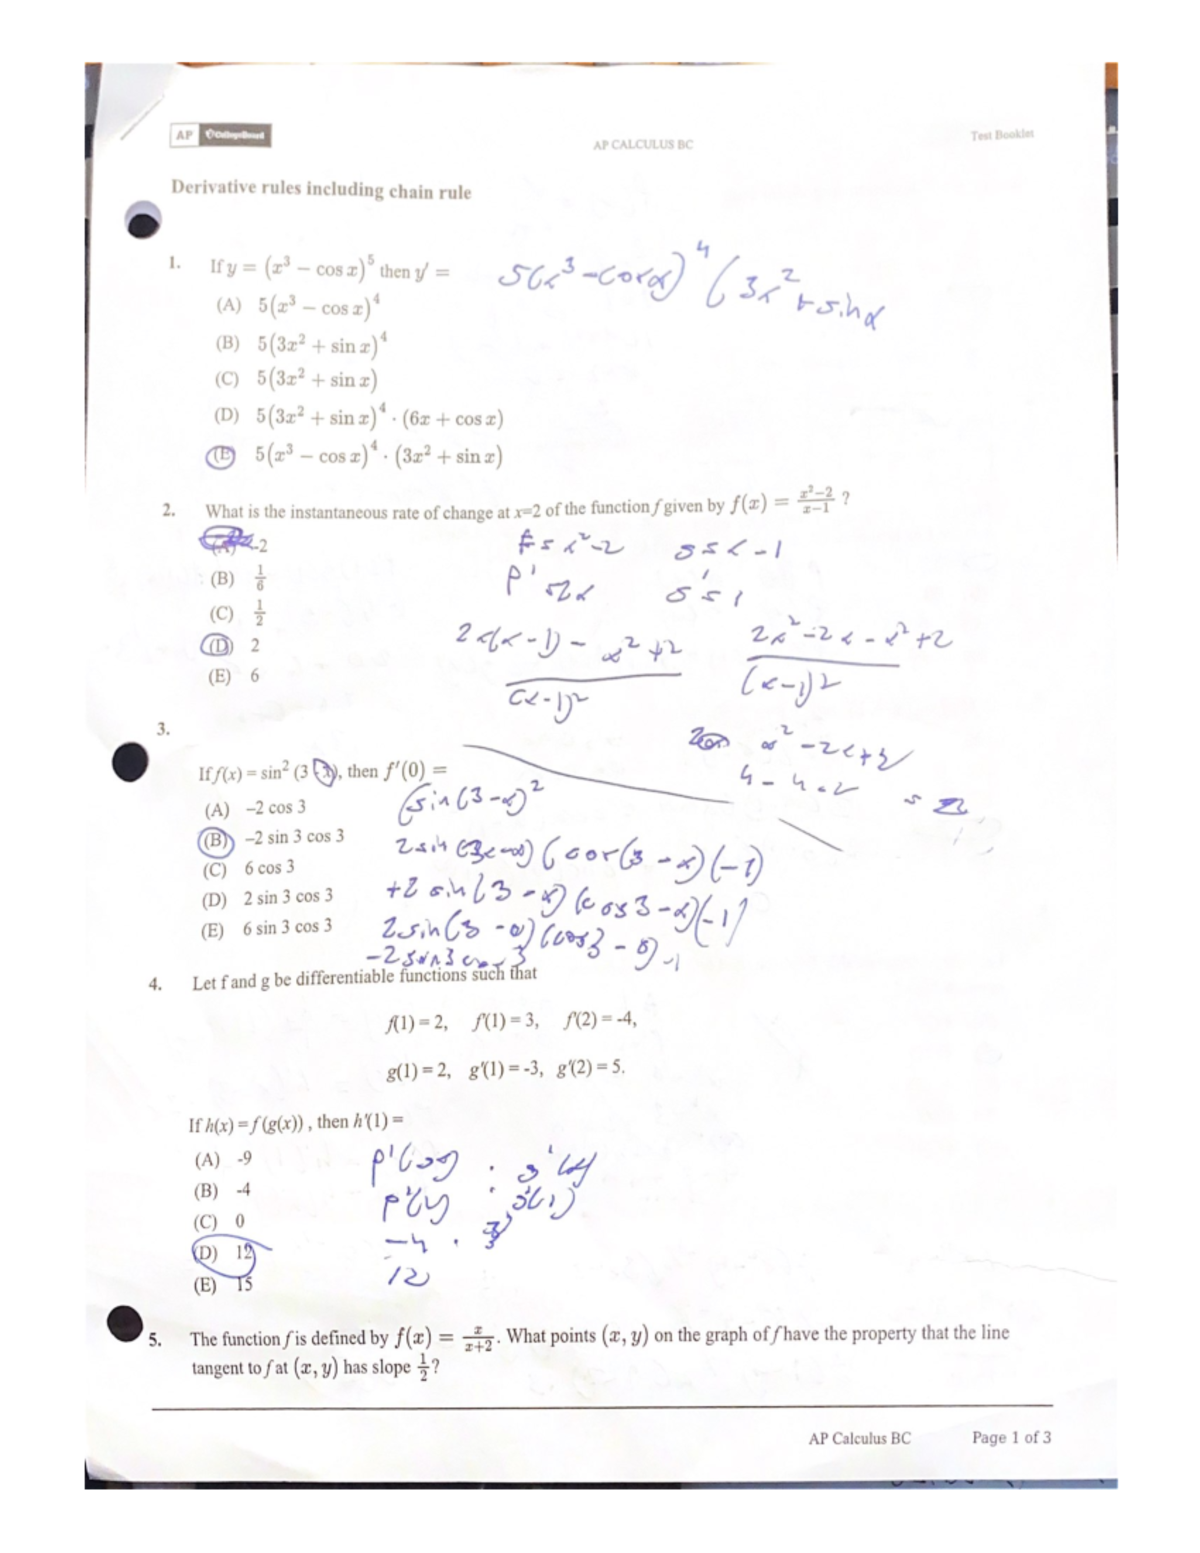 AP CollegeBoard
AP CALCULUS BC
Test Booklet
Derivative rules including chain rule
1. If y = (x³ − cos x)⁵ then y′ =
5(x³ − cos x)⁴ (3x² + sin x
(A) 5(x³ − cos x)⁴
(B) 5(3x² + sin x)⁴
(C) 5(3x² + sin x)
(D) 5(3x² + sin x)⁴ · (6x + cos x)
(E) 5(x³ − cos x)⁴ · (3x² + sin x)
2. What is the instantaneous rate of change at x=2 of the function f given by f(x) = (x²−2)/(x−1) ?
(A) -2
(B) 1/6
(C) 1/2
(D) 2
(E) 6
f = x²-2 g = x-1
f' = 2x g' = 1
2x(x-1) - x²+2 / (x-1)²
2x²-2x-x²+2 / (x-1)²
x²-2x+2
4-4+2 = 2
3.
If f(x) = sin² (3 - x), then f′(0) =
(A) −2 cos 3
(B) −2 sin 3 cos 3
(C) 6 cos 3
(D) 2 sin 3 cos 3
(E) 6 sin 3 cos 3
(sin(3-x)²
(cos(3-x)(-1)
+2 sin(3-x)(cos3-x)(-1)
2sin(3-0)(cos3-0)-1
-2sin3cos3
4. Let f and g be differentiable functions such that
f(1) = 2, f′(1) = 3, f′(2) = -4,
g(1) = 2, g′(1) = -3, g′(2) = 5.
If h(x) = f (g(x)) , then h′(1) =
(A) -9
(B) -4
(C) 0
(D) 12
(E) 15
-4 ·
12
5. The function f is defined by f(x) = x/(x+2). What points (x, y) on the graph of f have the property that the line
tangent to f at (x, y) has slope 1/2?
AP Calculus BC
Page 1 of 3